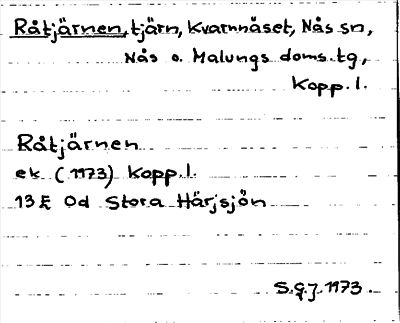 Råtjärnen, tjärn, Kvarnnåset, Nås sn,
Nås o. Malungs doms.tg,
Kopp. l.
Råtjärnen
ek (1973) Kopp. l.
13E 0d Stora Härjsjön
S.G.J. 1973.